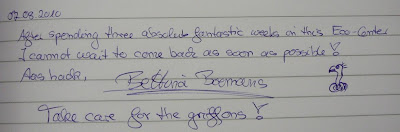 02.08.2010
After spending three absolut fantastic weeks in this Eco-Center
I cannot wait to come back as soon as possible!
Bettina
Take care for the griffons!